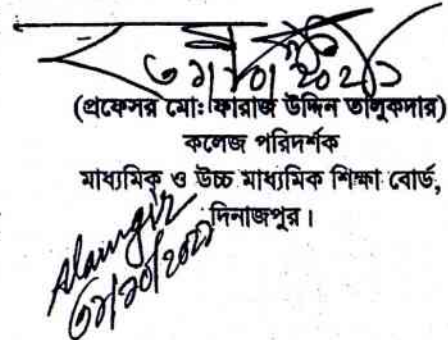 ৩১/১০/২০২১
(প্রফেসর মো: ফারাজ উদ্দিন তালুকদার)
কলেজ পরিদর্শক
মাধ্যমিক ও উচ্চ মাধ্যমিক শিক্ষা বোর্ড,
দিনাজপুর।
Alamgir
৩১/১০/২০২১